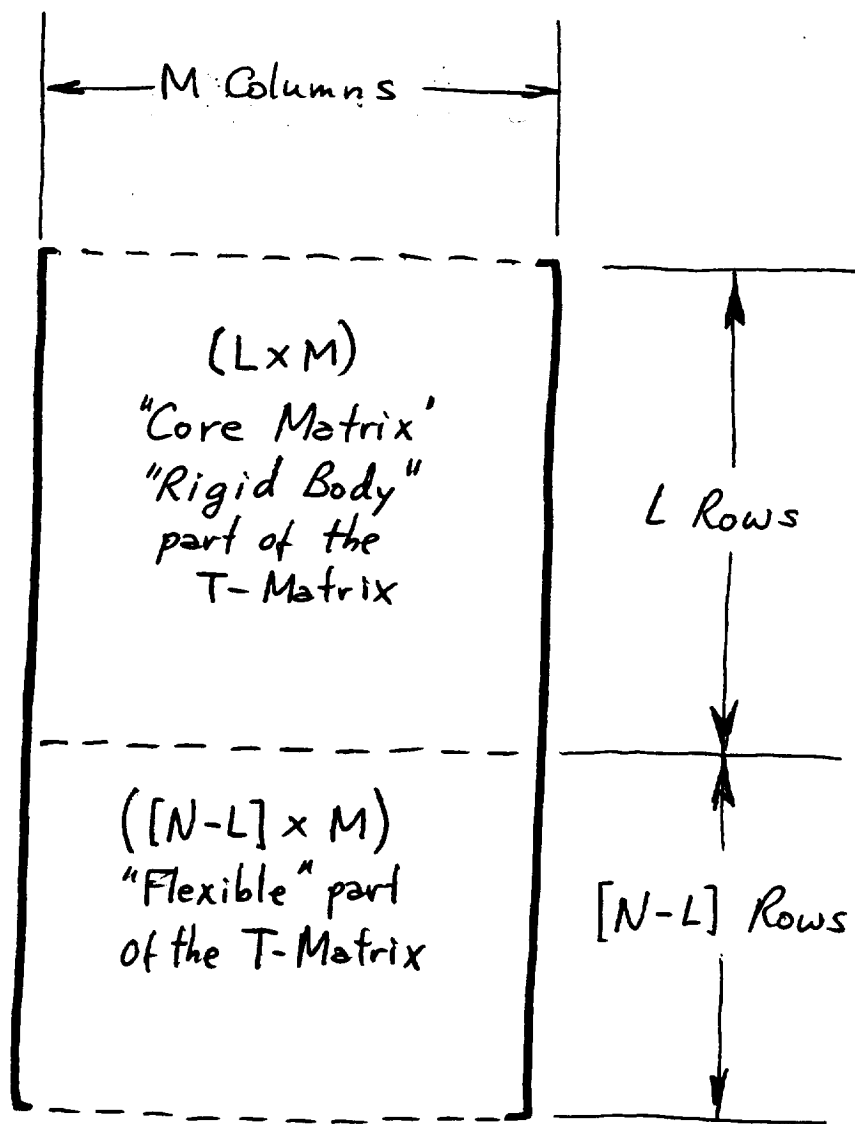 M Columns
(L x M)
"Core Matrix'
"Rigid Body"
part of the
T-Matrix
L Rows
([N-L] x M)
"Flexible" part
of the T-Matrix
[N-L] Rows